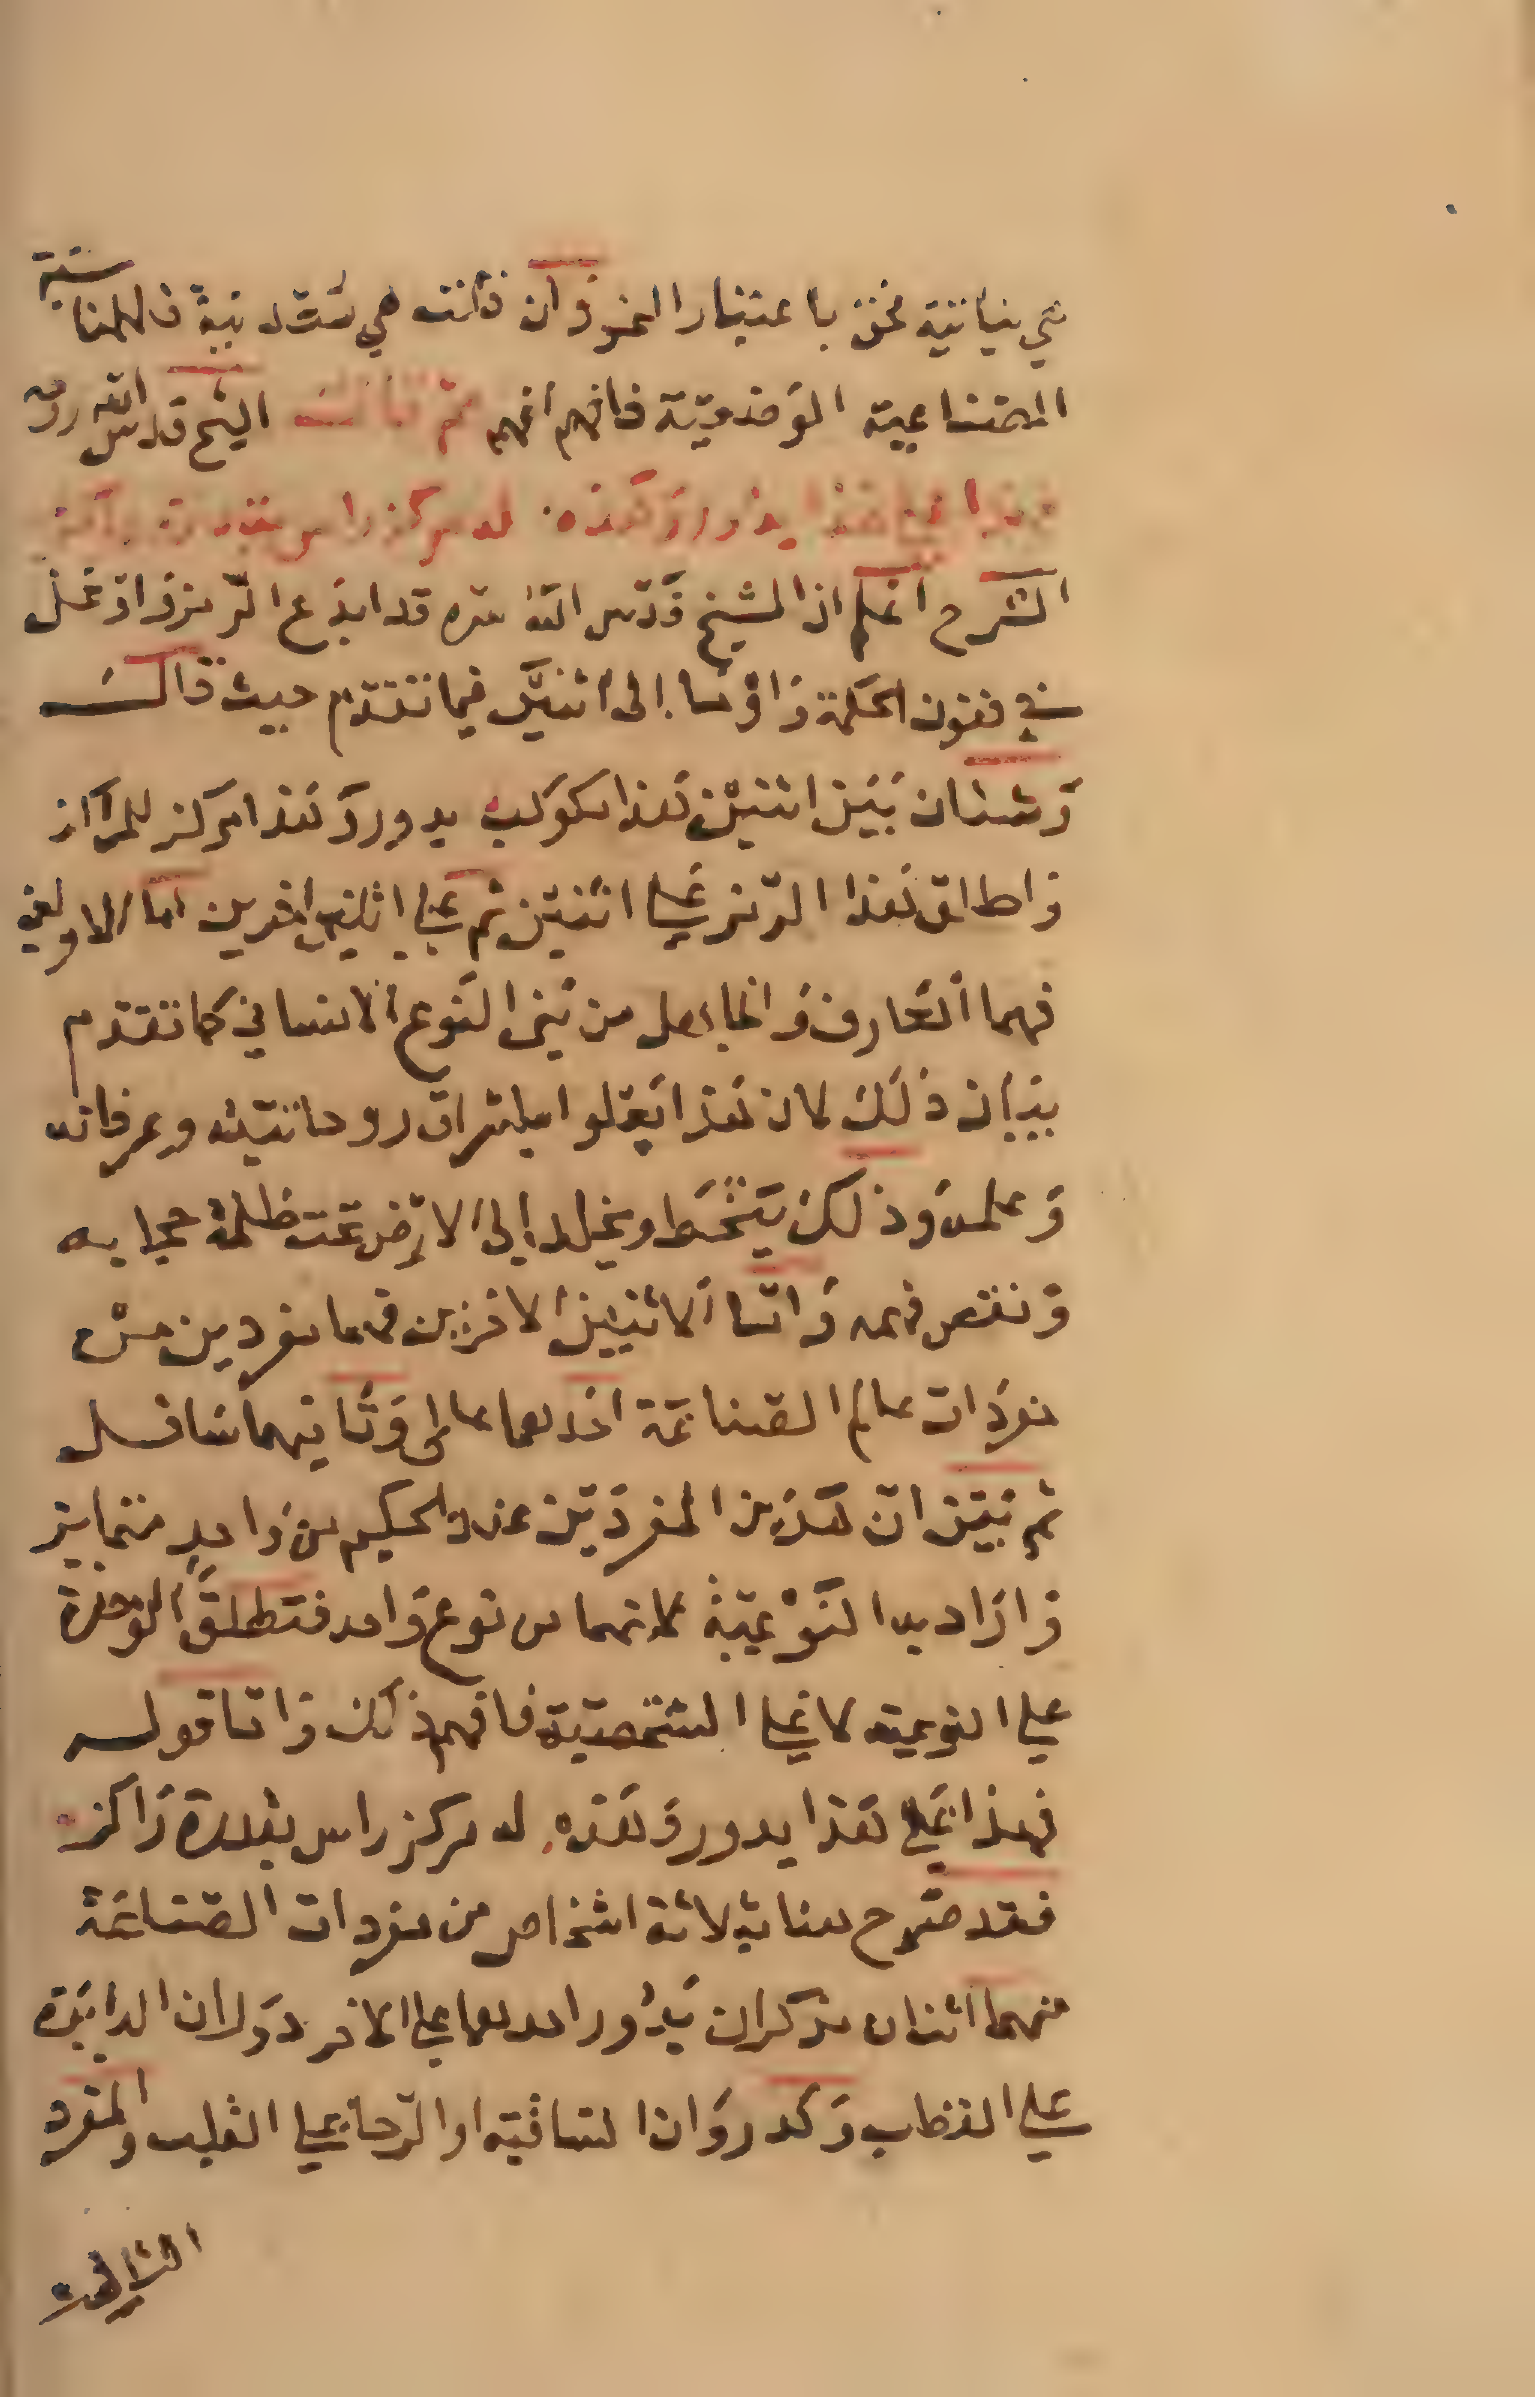 هي نباتية نحن باعتبار الحيوان كانت هي ست رتبة في المناسبة
الصناعية الوضعية فافهم افهم ثم قال الشيخ قدس الله روحه
فهذا على هذا يدور وهذه له مركز راس بقدرة راكز
الشرح اعلم ان الشيخ قدس الله سره قد ابدع الرمز واوغل
في فنون الحكمة واومأ الى اثنين فيما تقدم حيث قال
وشتان بين اثنين هذا ككوكب يدور وهذا مركز للمراكز
واطلق هذا الرمز على اثنين ثم على اثنين اخرين اما الاولين
فهما العارف والجاهل من بني النوع الانساني كما تقدم
بيان ذلك لان هذا يعلو باشراق روحانيته وعرفانه
وعلمه وذلك ينحط ويخلد إلى الارض تحت ظلمة حجابه
ونقص فهمه واما الاثنين الاخرين فهما مفردين من
مفردات عالم الصناعة احدهما عالى وثانيهما سافل
ثم نبين ان هذين المفردين عند الحكيم من واحد متمايز
واراد به النوعية لانهما من نوع واحد فتطلق الوحدة
على النوعية لا على الشخصية فافهم ذلك واما قوله
فهذا على هذا يدور وهذه له مركز راس بقدرة راكز
فقد صرح هنا بثلاثة اشخاص من مفردات الصناعة
منهما اثنان مذكران يدور احدهما على الاخر دوران الدايرة
على القطب وكدوران الساقية او الرحا على القلب والمفرد
الثالث